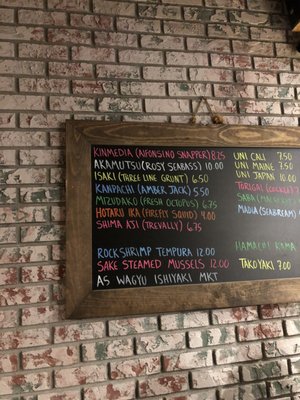 KINMEDIA (ALFONSINO SNAPPER) 8.25
AKAMUTSU (ROSY SEABASS) 10.00
ISAKI (THREE LINE GRUNT) 6.50
KANPACHI (AMBER JACK) 5.50
MIZUDAKO (FRESH OCTOPUS) 6.75
HOTARU IKA (FIREFLY SQUID) 9.00
SHIMA AJI (TREVALLY) 6.75
ROCKSHRIMP TEMPURA 12.00
SAKE STEAMED MUSSELS 12.00
A5 WAGYU ISHIYAKI MKT
UNI CALI 7.50
UNI MAINE 7.50
UNI JAPAN 10.00
TORIGAI
SABA
MADAI (SEABREAM)
HAMACHI KAMA
TAKOYAKI 7.00